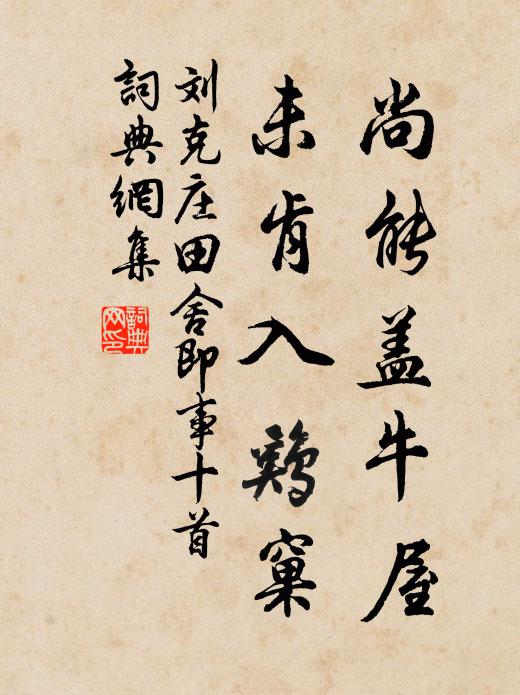 尚能盖牛屋
未肯入鷄窠
刘克庄田舍即事十首
詞典網集
詞典网印